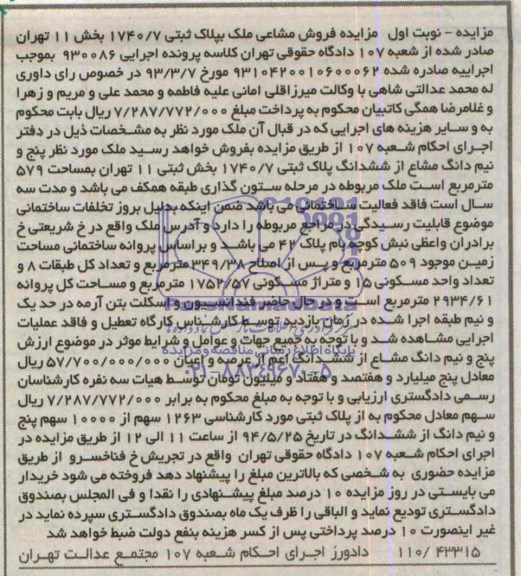 مزایده - نوبت اول مزایده فروش مشاعی ملک بپلاک ثبتی ۱۷۴۰/۷ بخش ۱۱ تهران
صادر شده از شعبه ۱۰۷ دادگاه حقوقی تهران کلاسه پرونده اجرایی ۹۳۰۰۸۶ بموجب
اجراییه صادره شده ۹۳۱۰۴۲۰۰۱۰۶۰۰۰۶۲ مورخ ۹۳/۳/۷ در خصوص رای داوری
له محمد عدالتی شاهی با وکالت میرزاقلی امانی علیه فاطمه و محمد علی و مریم و زهرا
و غلامرضا همگی کاتبیان محکوم به پرداخت مبلغ ۷/۲۸۷/۷۷۲/۰۰۰ ریال بابت محکوم
به و سایر هزینه های اجرایی که در قبال آن ملک مورد نظر به مشخصات ذیل در دفتر
اجرای احکام شعبه ۱۰۷ از طریق مزایده بفروش خواهد رسید ملک مورد نظر پنج و
نیم دانگ مشاع از ششدانگ پلاک ثبتی ۱۷۴۰/۷ بخش ثبتی ۱۱ تهران بمساحت ۵۷۹
مترمربع است ملک مربوطه در مرحله ستون گذاری طبقه همکف می باشد و مدت سه
سال است فاقد فعالیت ساختمانی می باشد ضمن اینکه بدلیل بروز تخلفات ساختمانی
موضوع قابلیت رسیدگی در مراجع مربوطه را دارد و آدرس ملک واقع در خ شریعتی خ
برادران واعظی نبش کوچه بام پلاک ۴۲ می باشد و بر اساس پروانه ساختمانی مساحت
زمین موجود ۵۰۹ مترمربع و پس از اصلاح ۳۴۹/۳۸ مترمربع و تعداد کل طبقات ۸ و
تعداد واحد مسکونی ۱۵ و متراژ مسکونی ۱۷۵۲/۵۷ مترمربع و مساحت کل پروانه
۲۹۳۴/۶۱ مترمربع است و در حال حاضر فندانسیون و اسکلت بتن آرمه در حد یک
و نیم طبقه اجرا شده در زمان بازدید توسط کارشناس کارگاه تعطیل و فاقد عملیات
اجرایی مشاهده شد و با توجه به جمیع جهات و عوامل و شرایط موثر در موضوع ارزش
پنج و نیم دانگ مشاع از ششدانگ اعم از عرصه و اعیان ۵۷/۷۰۰/۰۰۰/۰۰۰ ریال
معادل پنج میلیارد و هفتصد و هفتاد و میلیون تومان توسط هیات سه نفره کارشناسان
رسمی دادگستری ارزیابی و با توجه به مبلغ محکوم به برابر ۷/۲۸۷/۷۷۲/۰۰۰ ریال
سهم معادل محکوم به از پلاک ثبتی مورد کارشناسی ۱۲۶۳ سهم از ۱۰۰۰۰ سهم پنج
و نیم دانگ از ششدانگ در تاریخ ۹۴/۵/۲۵ از ساعت ۱۱ الی ۱۲ از طریق مزایده در
اجرای احکام شعبه ۱۰۷ دادگاه حقوقی تهران واقع در تجریش خ فناخسرو از طریق
مزایده حضوری به شخصی که بالاترین مبلغ را پیشنهاد دهد فروخته می شود خریدار
می بایستی در روز مزایده ۱۰ درصد مبلغ پیشنهادی را نقدا و فی المجلس بصندوق
دادگستری تودیع نماید و الباقی را ظرف یک ماه بصندوق دادگستری سپرده نماید در
غیر اینصورت ۱۰ درصد پرداختی پس از کسر هزینه بنفع دولت ضبط خواهد شد
۱۱۰/ ۴۳۳۱۵ دادورز اجرای احکام شعبه ۱۰۷ مجتمع عدالت تهران
پایگاه اطلاع رسانی مناقصه و مزایده
۰۲۱-۸۸۳۴۹۶۷۰-۵